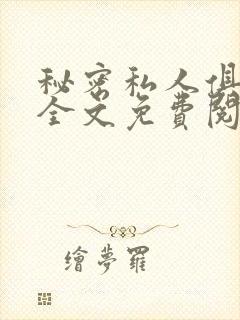 秘密私人俱
全文免費閱
繪夢羅